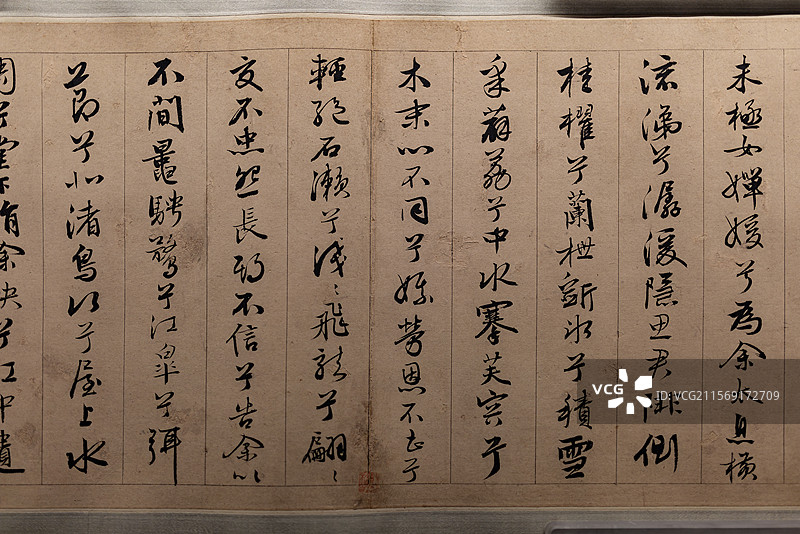 未極女嬋媛兮為余太息橫
流涕兮潺湲隱思君陫側
桂櫂兮蘭枻斲冰兮積雪
采薜荔兮中水搴芙容兮
木末心不同兮媒勞恩不甚兮
輕絕石瀨兮淺〻飛龍兮翩〻
交不忠怨長期不信兮告余以
不間鼂騁騖兮江皋兮弭
節兮北渚鳥次兮屋上水
周兮堂下捐余玦兮江中遺
VCG
VCG211569172709